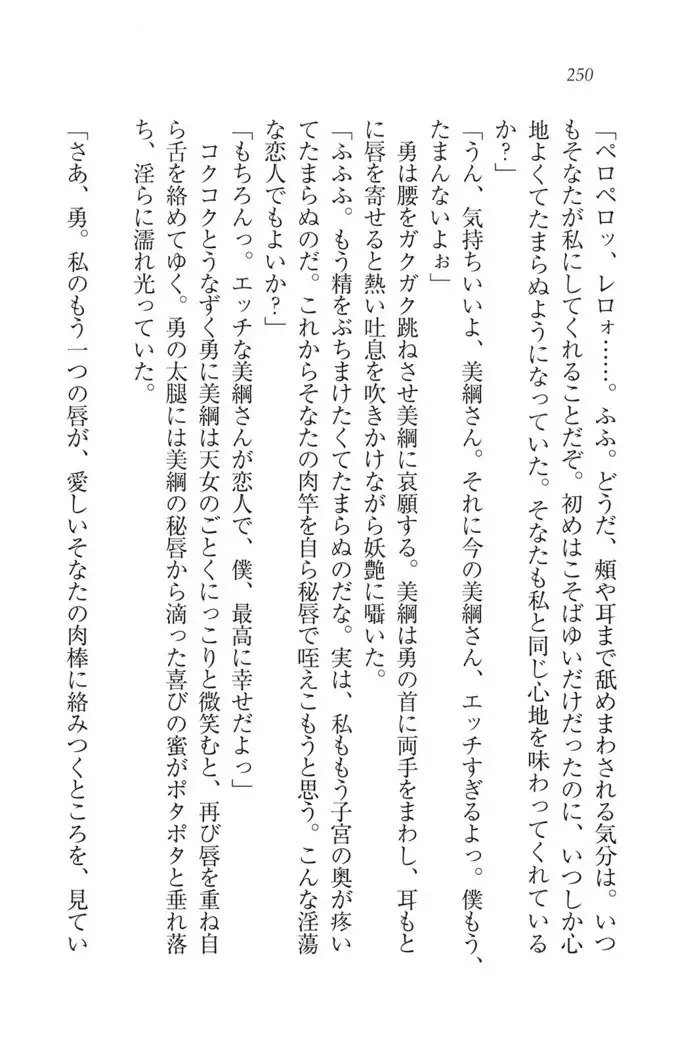 250
「ペロペロッ、レロォ……。ふふ。どうだ、頰や耳まで舐めまわされる気分は。いつ
もそなたが私にしてくれることだぞ。初めはこそばゆいだけだったのに、いつしか心
地よくてたまらぬようになっていた。そなたも私と同じ心地を味わってくれている
か?」
「うん、気持ちいいよ、美綱さん。それに今の美綱さん、エッチすぎるよっ。僕もう、
たまんないよぉ」
勇は腰をガクガク跳ねさせ美綱に哀願する。美綱は勇の首に両手をまわし、耳もと
に唇を寄せると熱い吐息を吹きかけながら妖艶に囁いた。
「ふふふ。もう精をぶちまけたくてたまらぬのだな。実は、私ももう子宮の奥が疼い
てたまらぬのだ。これからそなたの肉竿を自ら秘唇で咥えこもうと思う。こんな淫蕩
な恋人でもよいか?」
「もちろんっ。エッチな美綱さんが恋人で、僕、最高に幸せだよっ」
コクコクとうなずく勇に美綱は天女のごとくにっこりと微笑むと、再び唇を重ね自
ら舌を絡めてゆく。勇の太腿には美綱の秘唇から滴った喜びの蜜がポタポタと垂れ落
ち、淫らに濡れ光っていた。
「さあ、勇。私のもう一つの唇が、愛しいそなたの肉棒に絡みつくところを、見てい